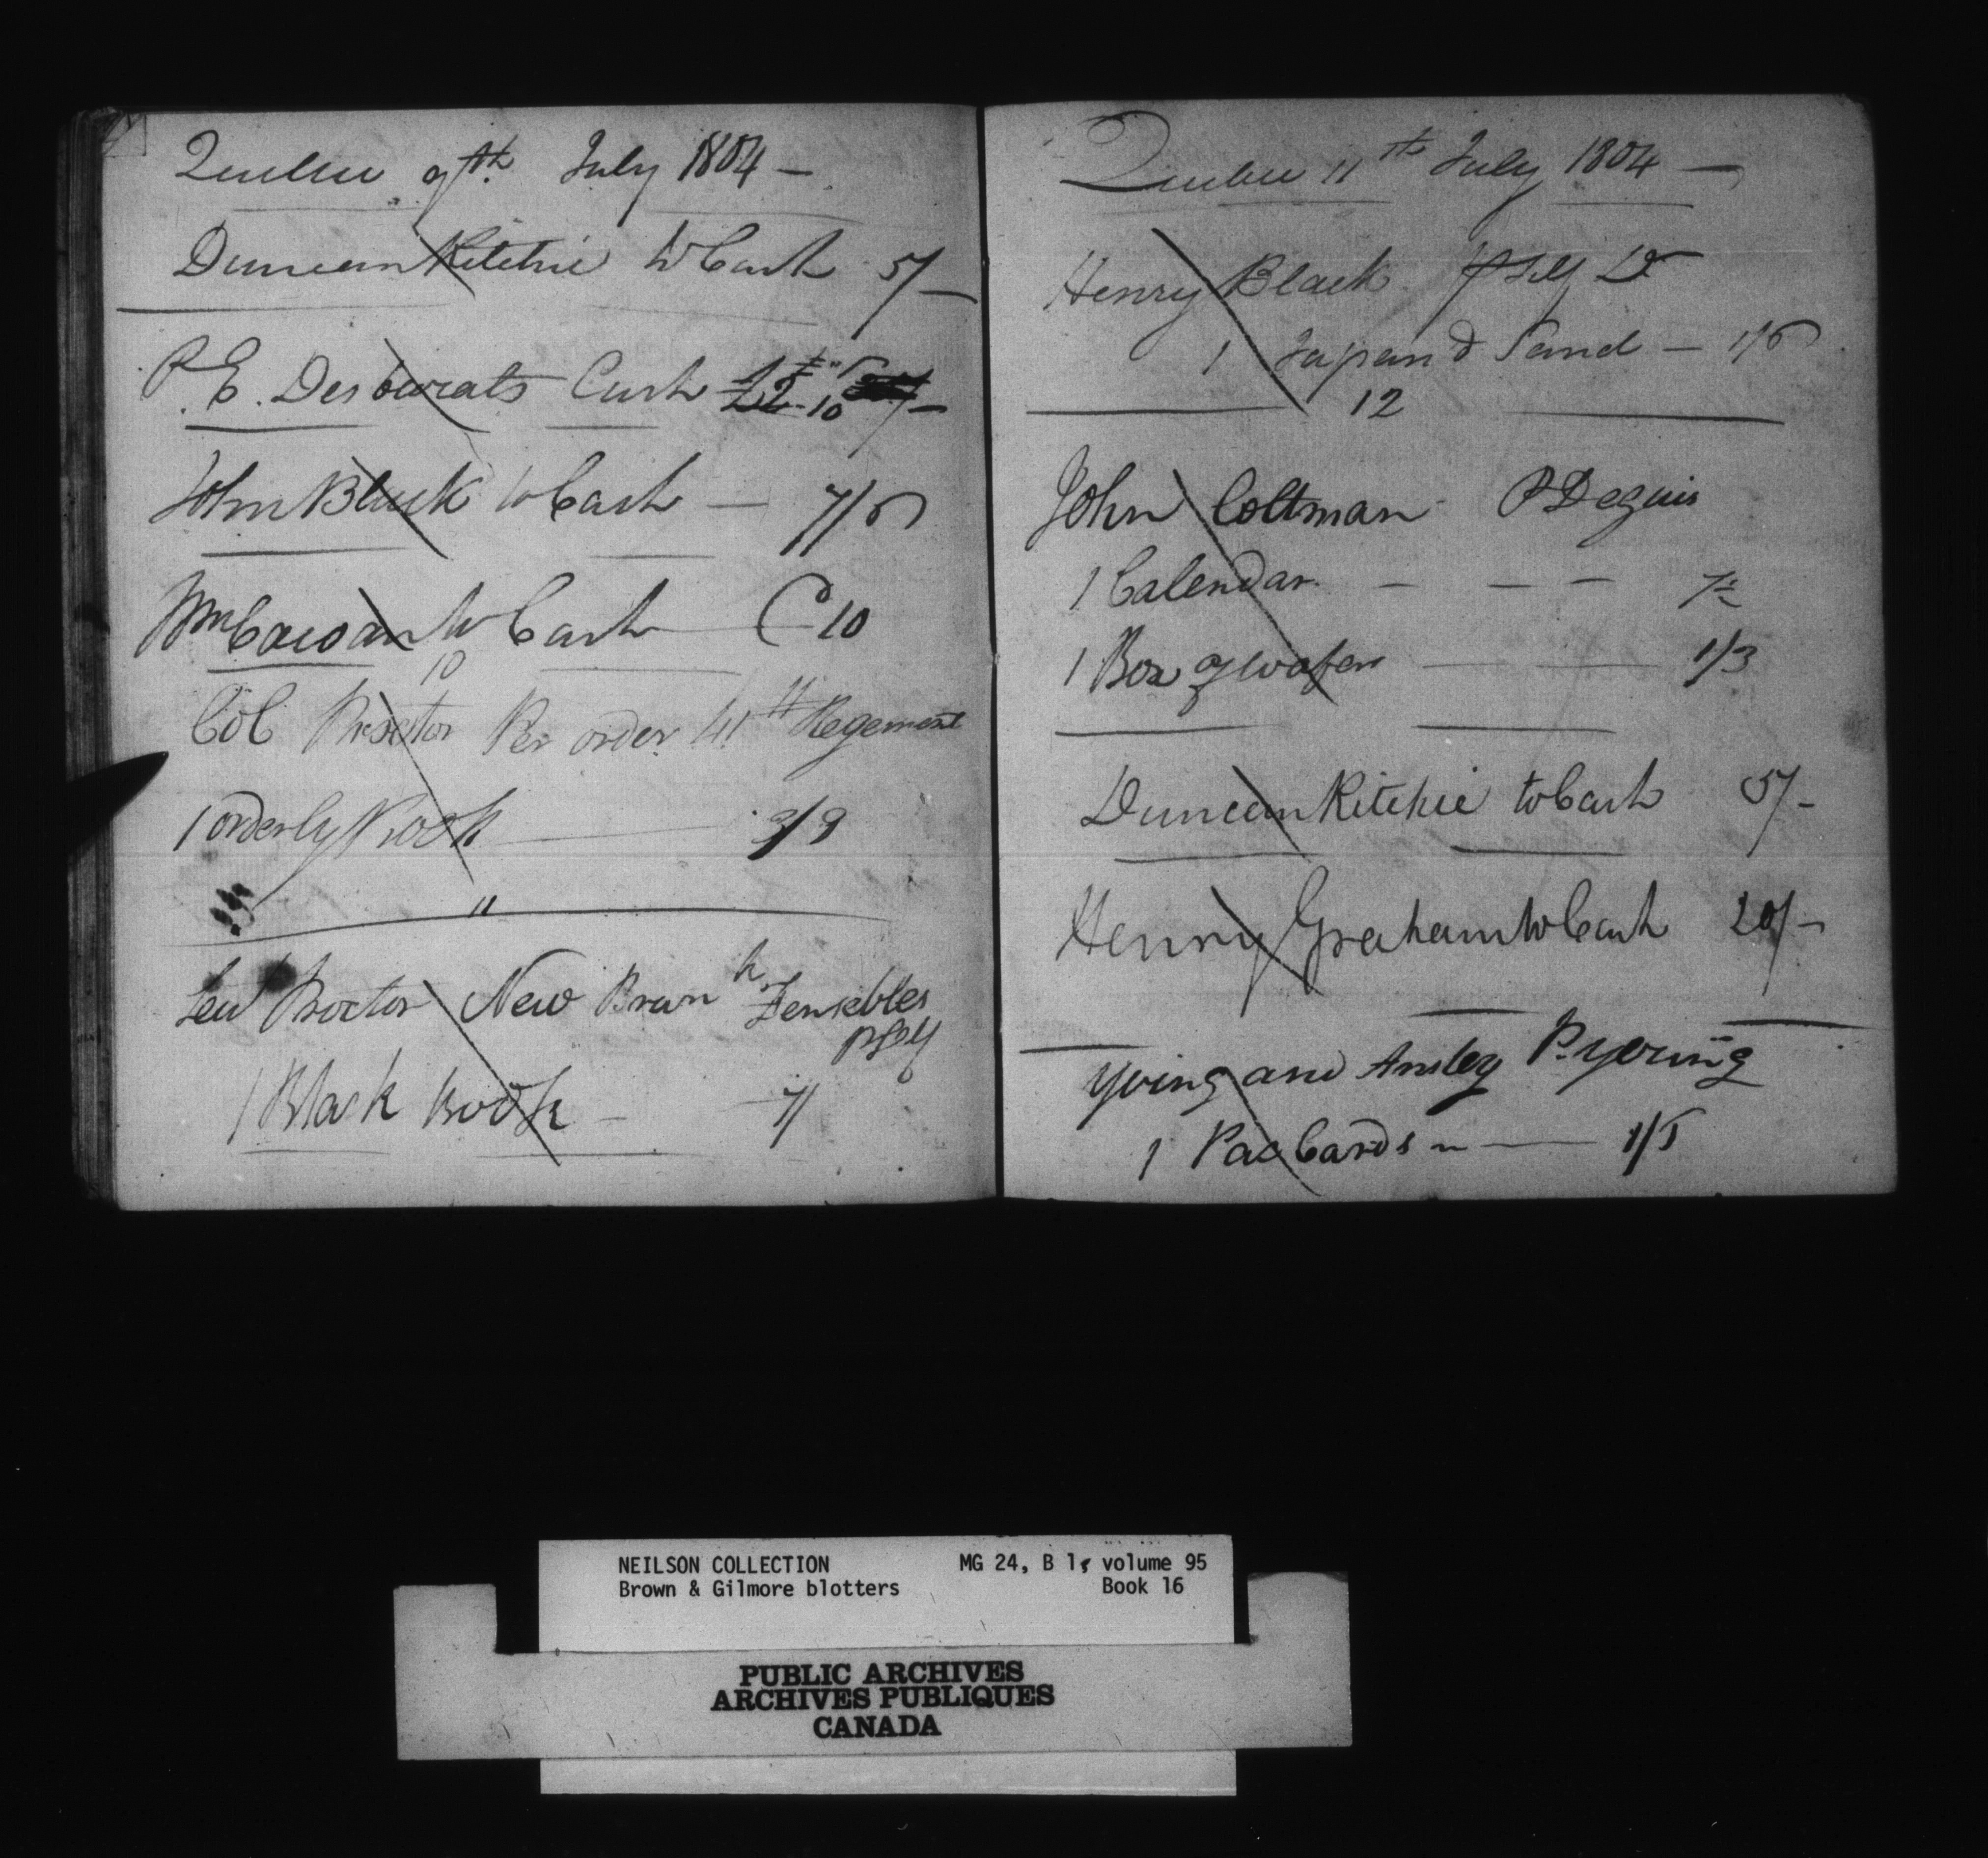 Quebec 9th July 1804 —
Duncan Ritchie to Cash 5/—
P. E. Desbarats Cash
John Black to Cash — 7/6
Wm Cowan to Cash 10
10
Col Proctor Per order 41st Regement
1 orderly Book 3/9
"
Proctor New Brunk Fensebles
pself
1 Black Book — 7/
Quebec 11th July 1804 —
Henry Black pself Dr
1 Japand Sand — 1/6
12
John Coltman P Deguis
1 Calendar — — —
1 Box of wafers 1/3
Duncan Ritchie to Cash 5/-
Henry Graham to Cash 20/-
Young and Ansley P. young
1 Pac Cards
NEILSON COLLECTION MG 24, B 1, volume 95
Brown & Gilmore blotters Book 16
PUBLIC ARCHIVES
ARCHIVES PUBLIQUES
CANADA